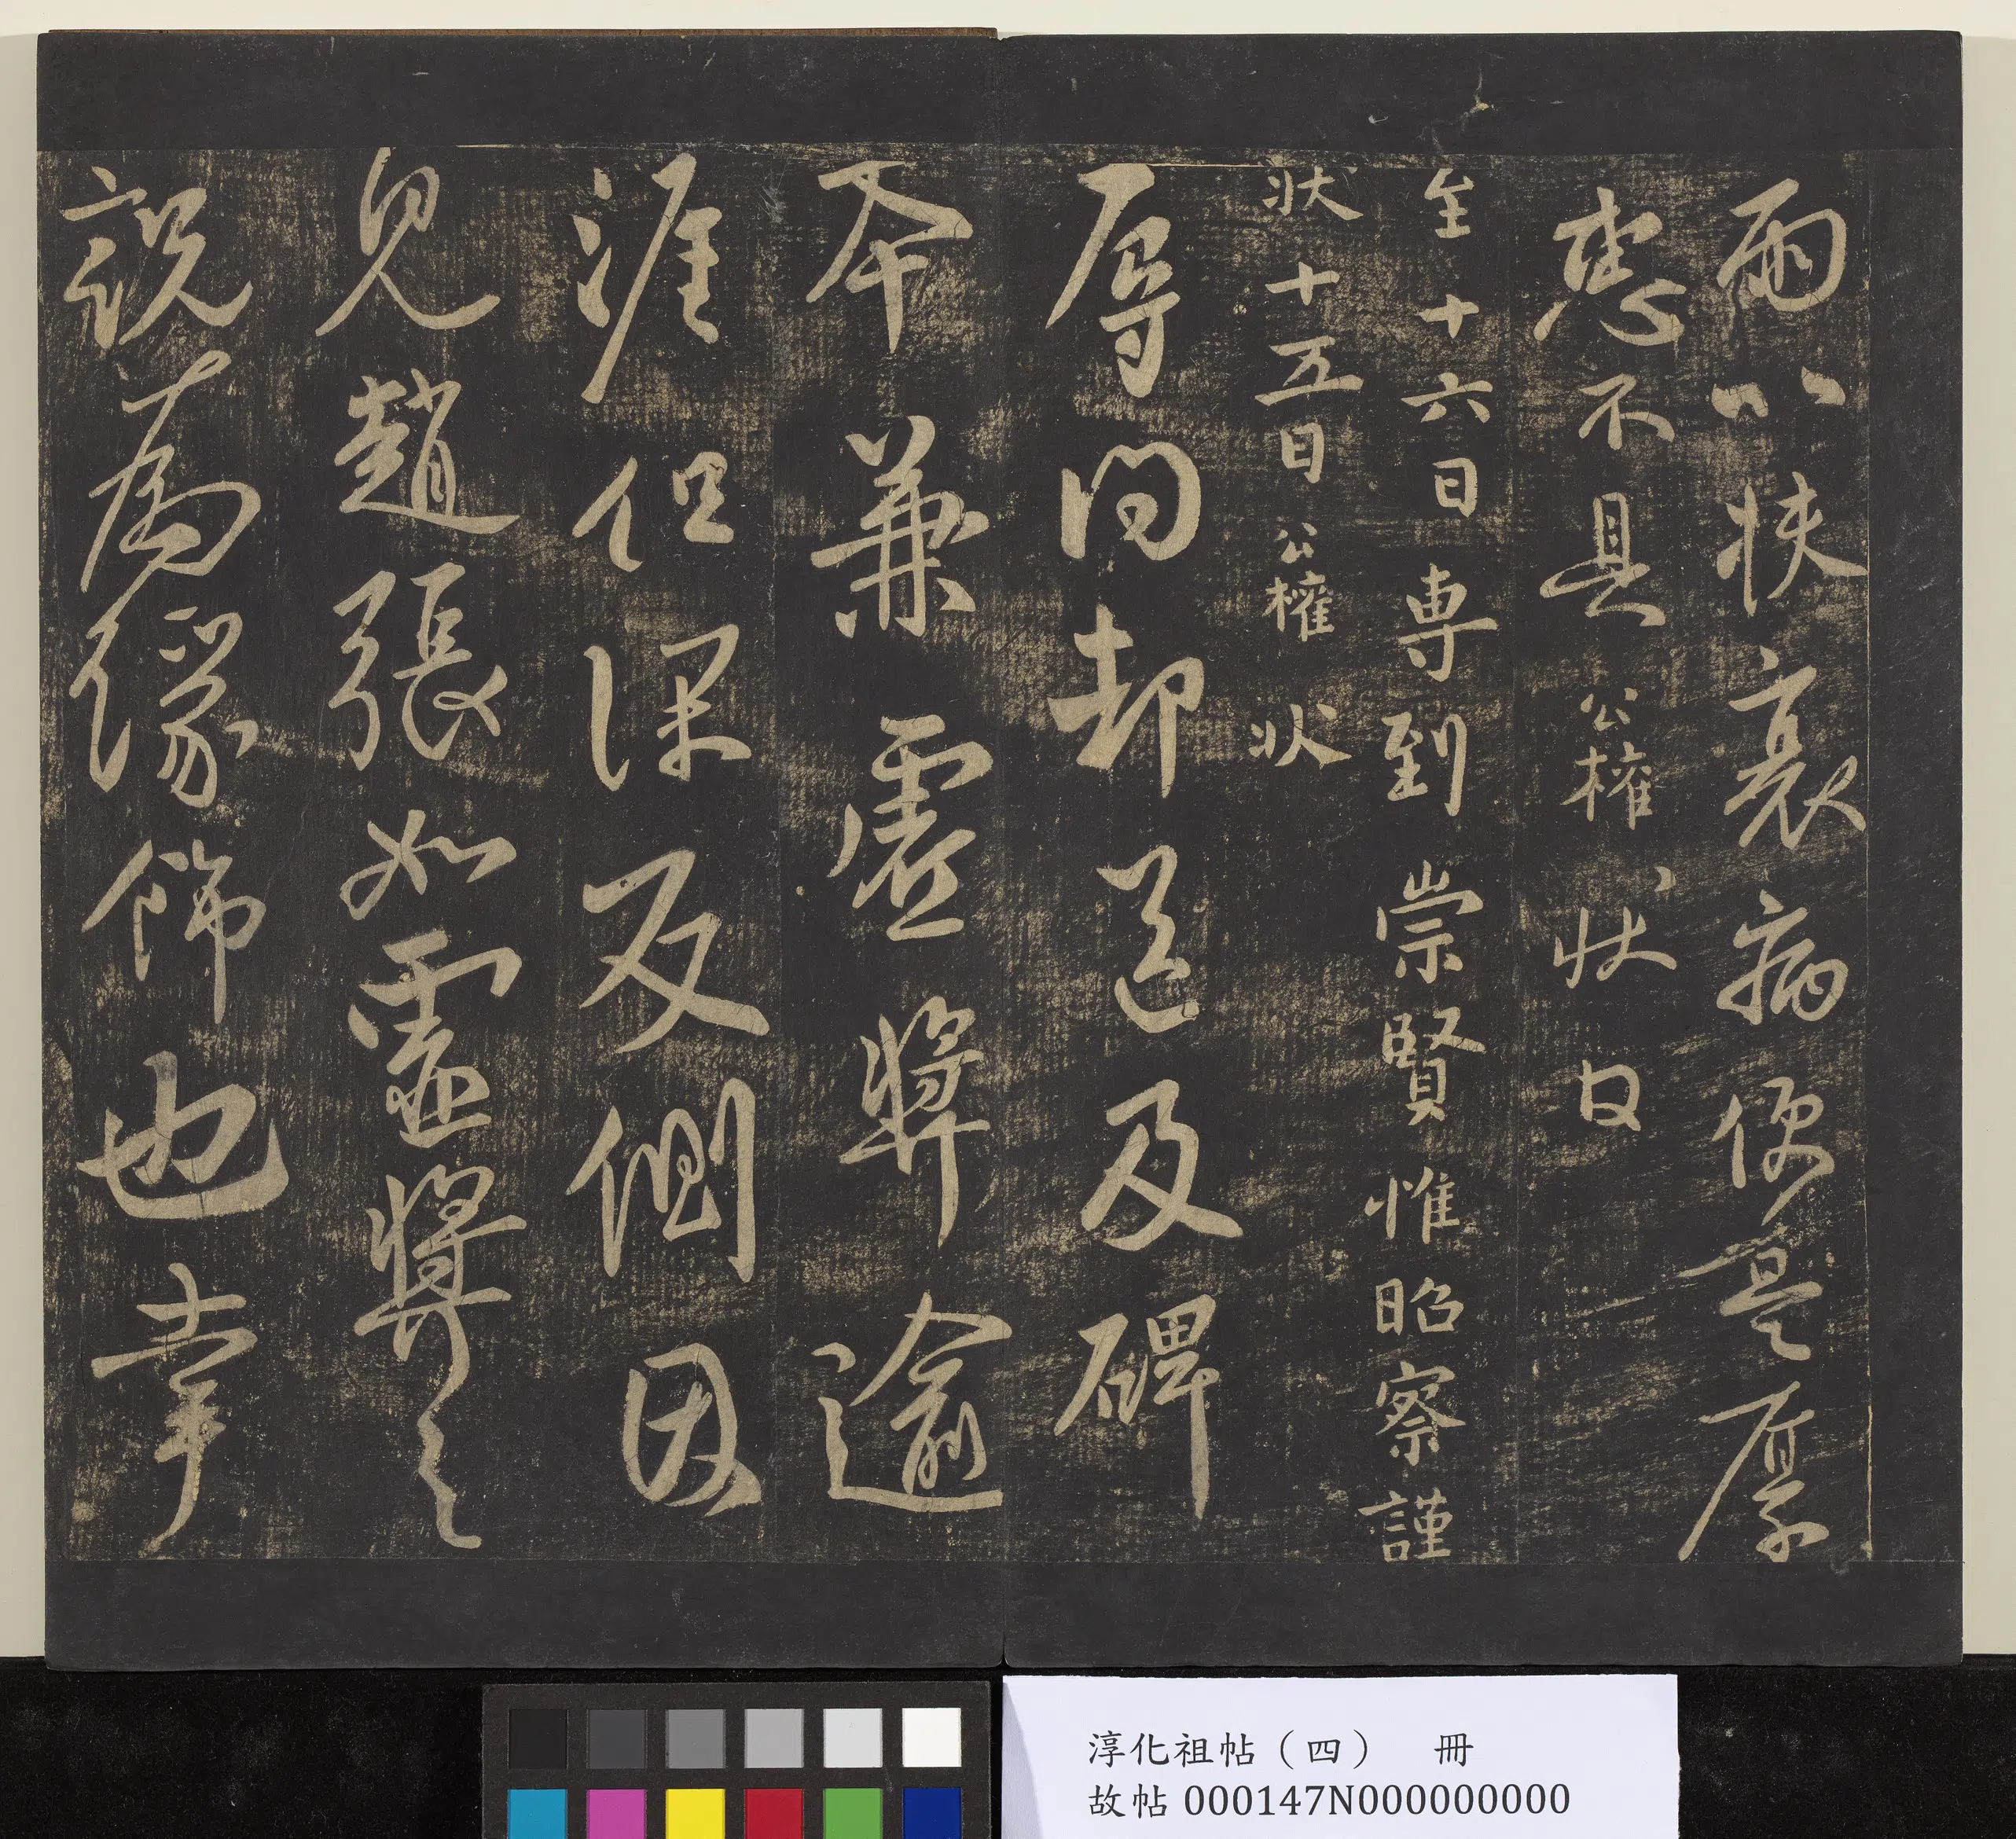 兩以扶衰病便是厚
惠不具公權狀白
至十六日專到崇賢惟昭察謹
狀十五日公權狀
辱問却送及碑
本兼虛獎逾
涯但深反側因
見趙張如虛獎之
說為緣飾也幸
淳化祖帖（四） 冊
故帖000147N000000000